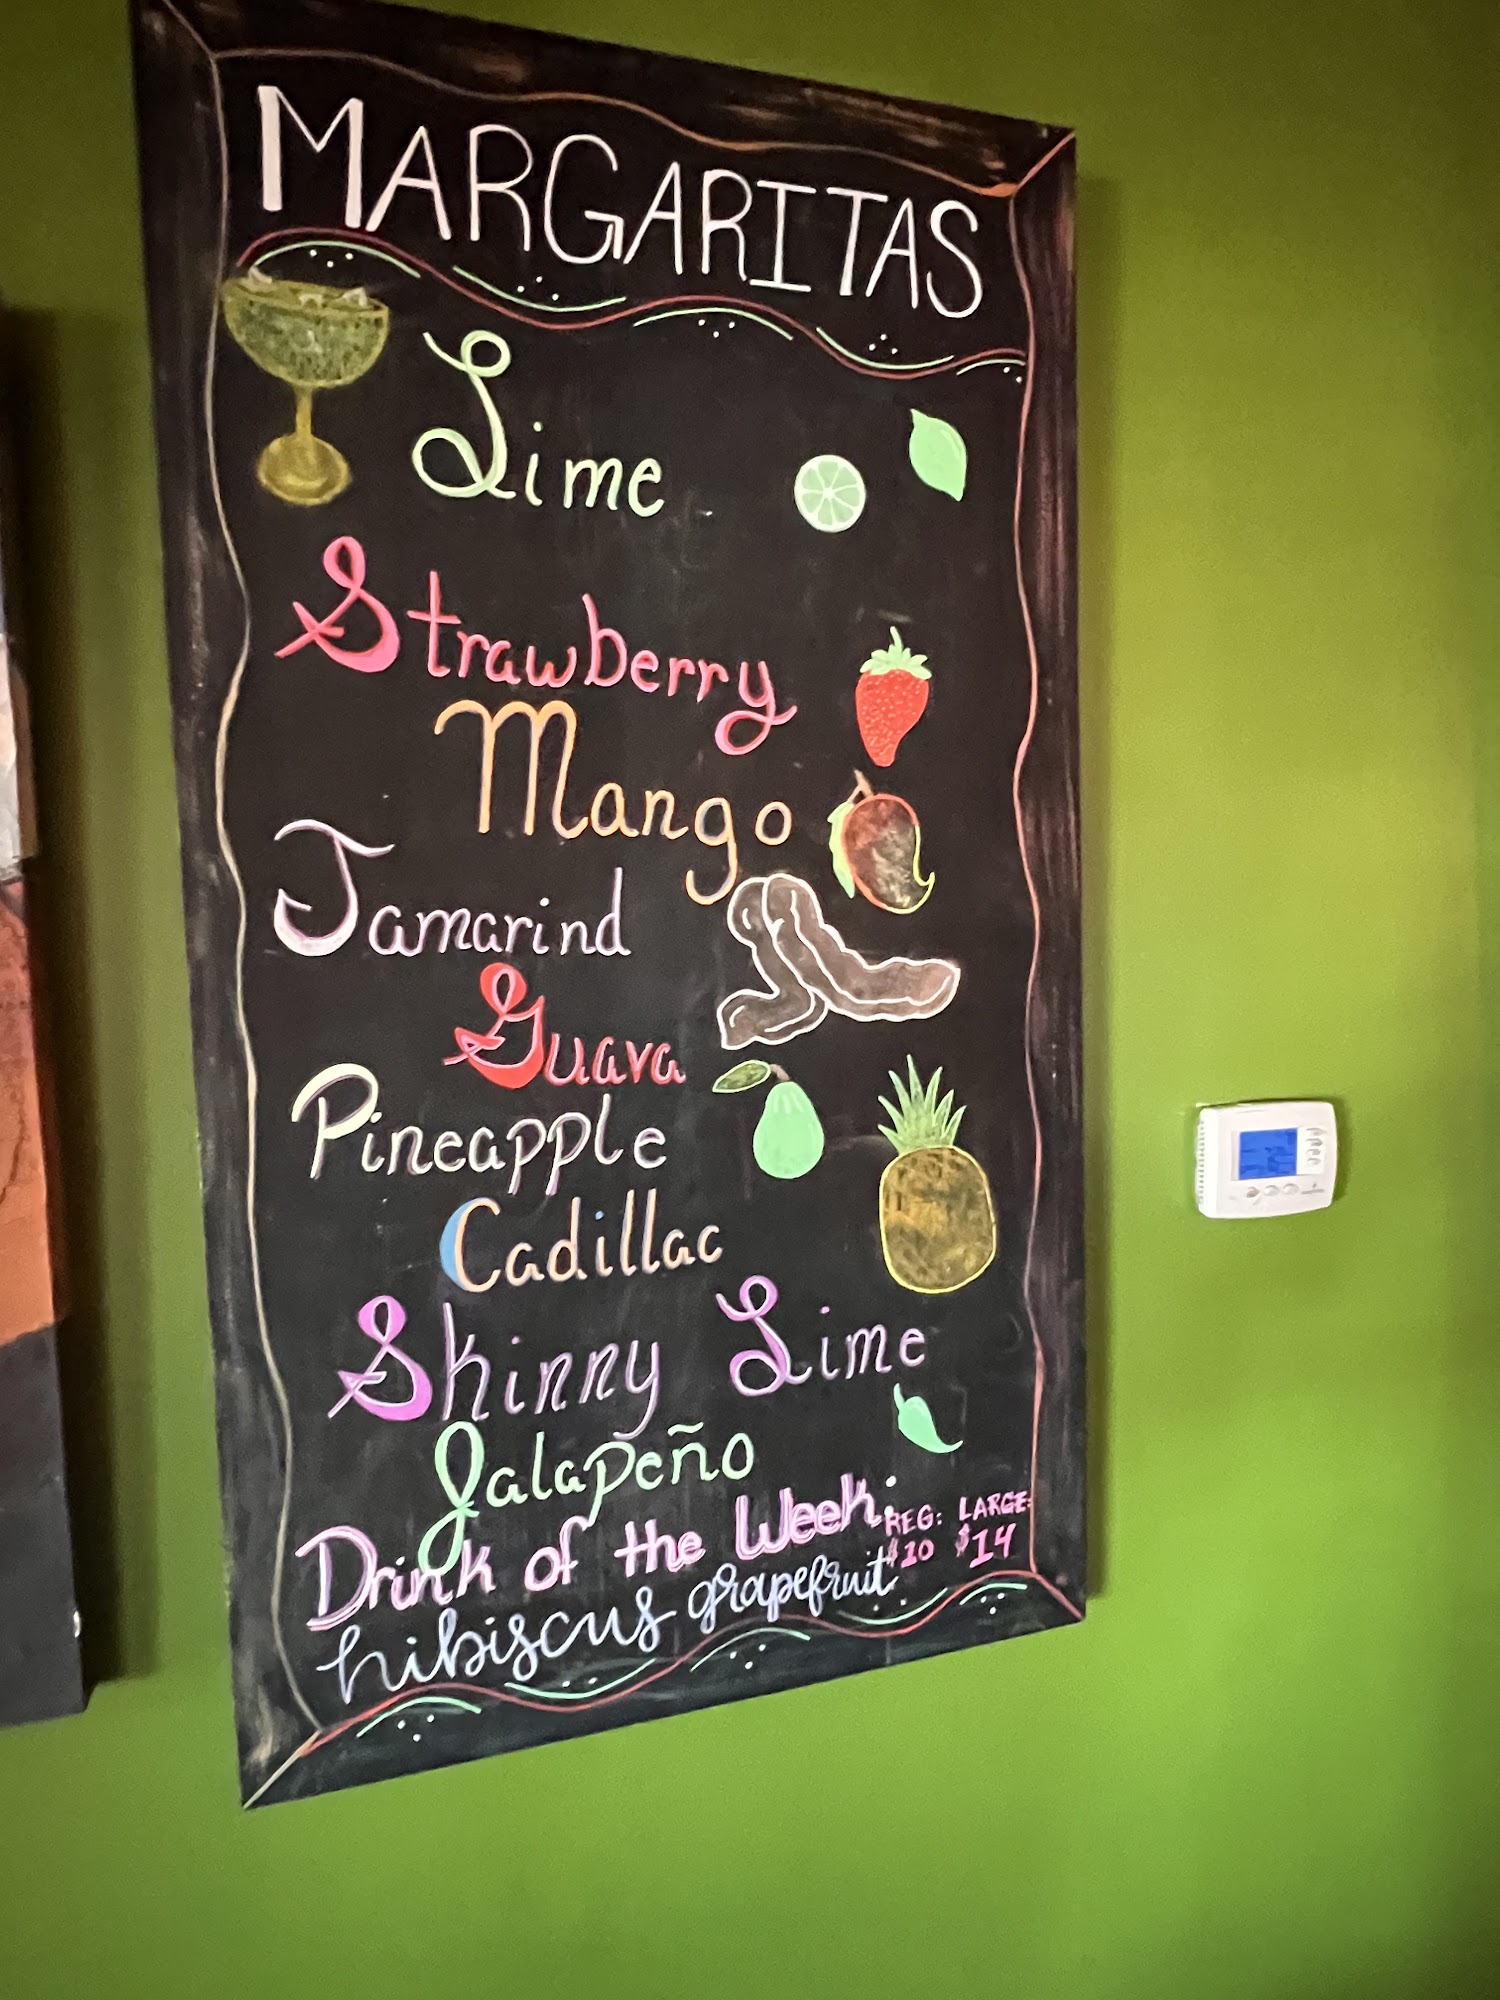 MARGARITAS
Lime
Strawberry
Mango
Tamarind
Guava
Pineapple
Cadillac
Skinny Lime
Jalapeño
Drink of the Week:
hibiscus grapefruit
REG: LARGE:
$10 $14